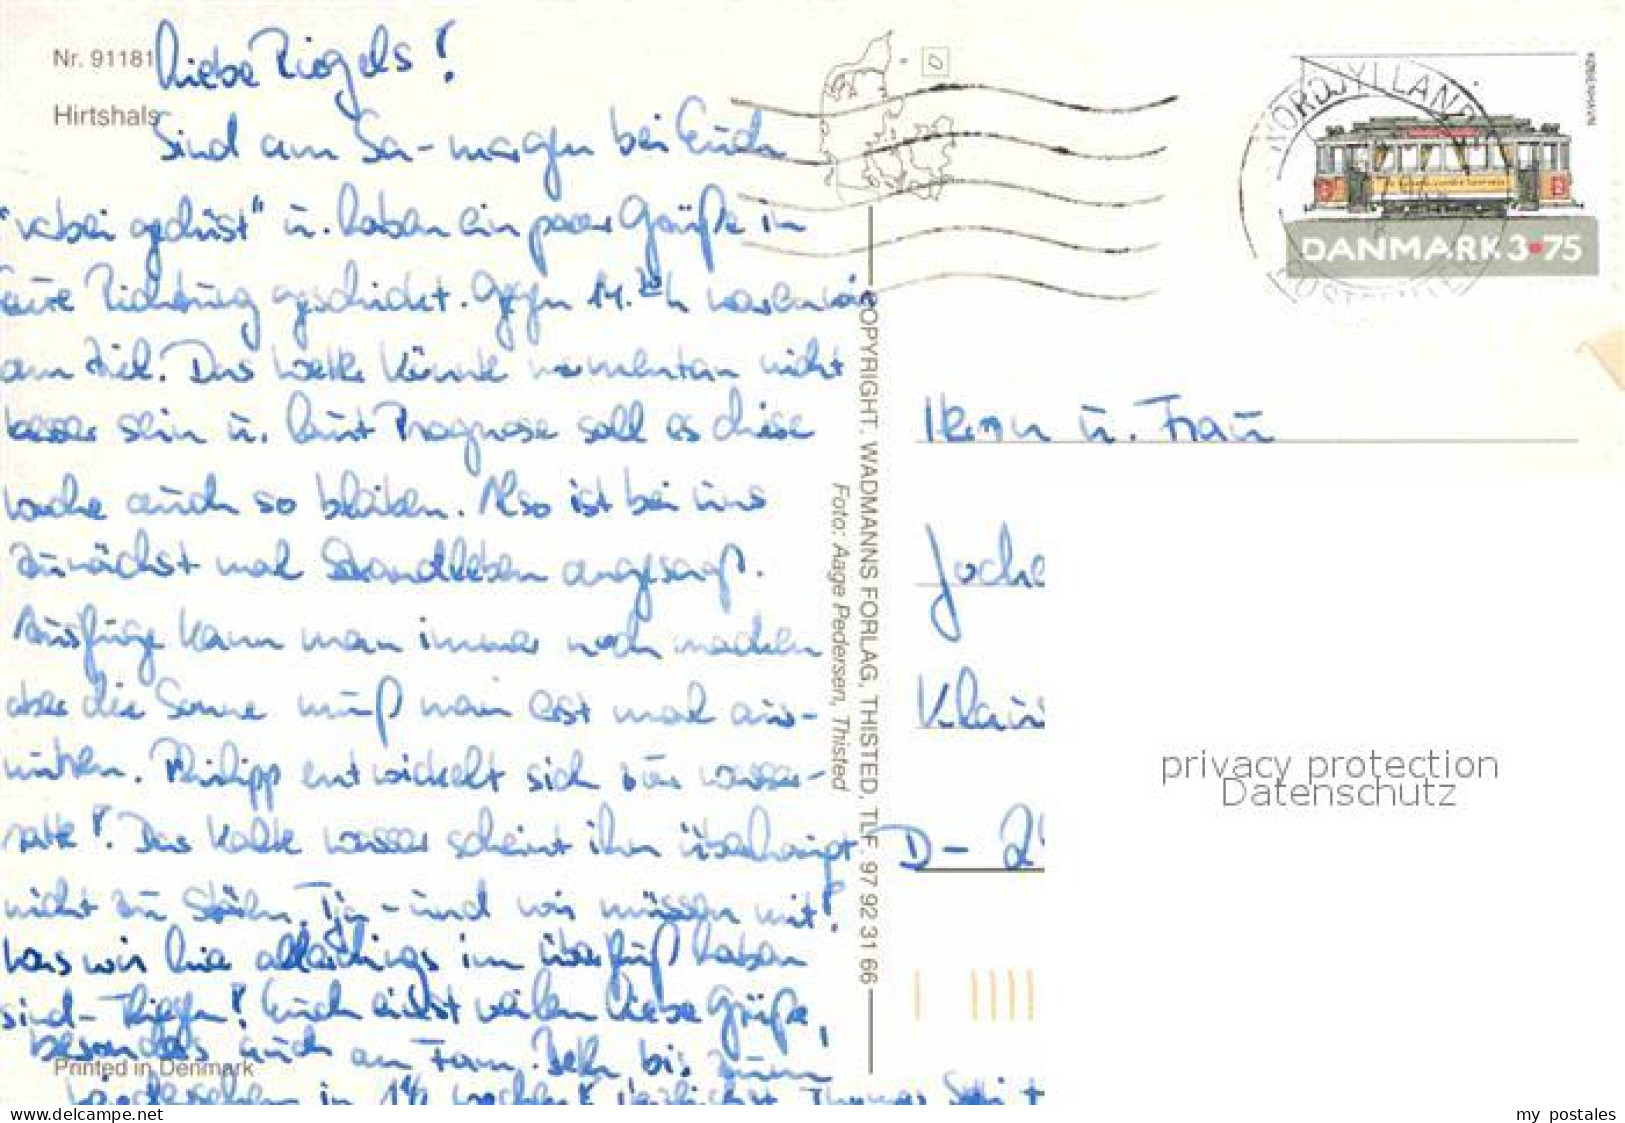 Nr. 91181
Hirtshals
Liebe Riegels!
Sind am Sa-morgen bei Euch
"vorbei gedüst" u. haben ein paar Grüße in
Eure Richtung geschickt. Gegen 14.ºº h waren wir
am Ziel. Das Wetter könnte momentan nicht
besser sein u. laut Prognose soll es diese
Woche auch so bleiben. Also ist bei uns
zunächst mal Strandleben angesagt.
Ausflüge kann man immer noch machen
aber die Sonne muß man erst mal aus-
nützen. Philipp entwickelt sich zur Wasser-
ratte! Das kalte Wasser scheint ihn überhaupt
nicht zu stören. Tja - und wir müssen mit!
Was wir hier allerdings im Überfluß haben
sind - Fliegen! Euch allerliebste Grüße,
besonders auch an Fam. bis zum
Wiedersehen in 1½ Wochen! Thomas
Printed in Denmark
COPYRIGHT. WADMANNS FORLAG, THISTED, TLF. 97 92 31 66
Foto: Aage Pedersen, Thisted
KØBENHAVN
NORDJYLLANDS
POSTCENTER
DANMARK 3•75
Herrn u. Frau
Joche
Klau
D - 2
privacy protection
Datenschutz
www.delcampe.net
my_postales